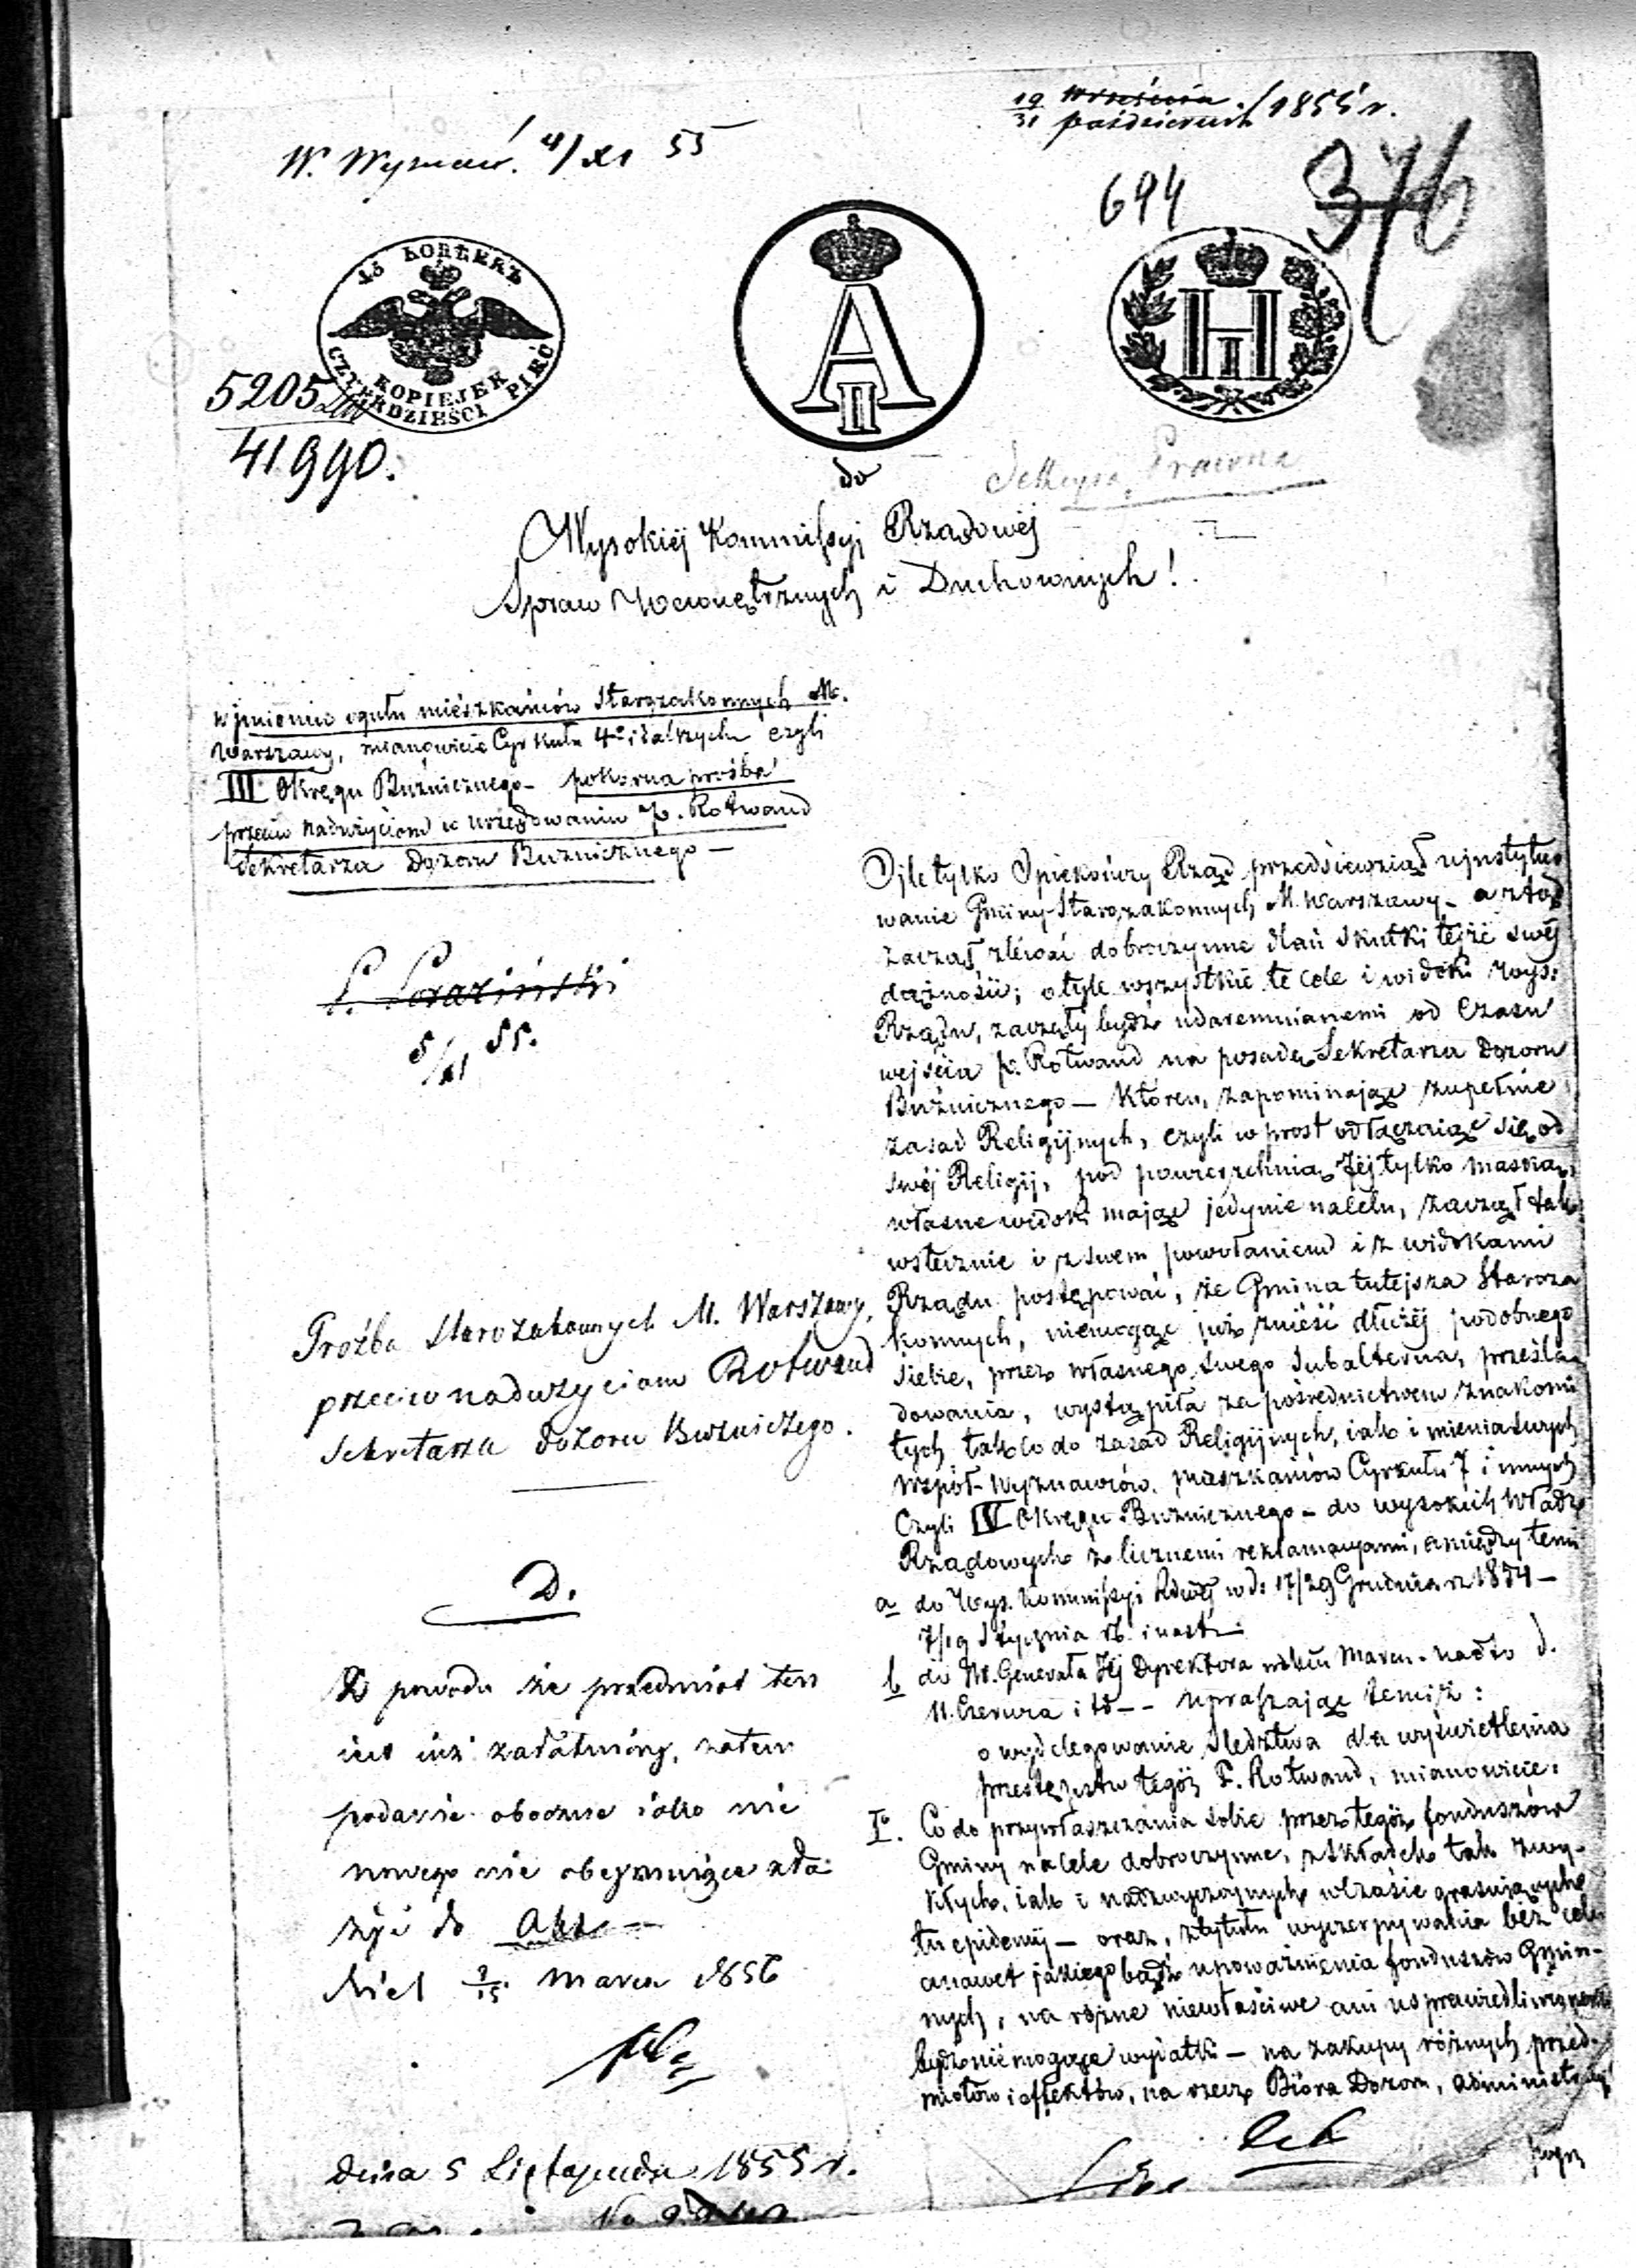 19/31 Września / Października 1855 r.
W. Wyznań. 4/XI 55
694
376
45 КОПѢЕКЪ
KOPIEJEK
CZTERDZIEŚCI PIĘĆ
A II
H I
5205
41990.
do
Sekcya Prawna
Wysokiéj Kommissyi Rządowéj
Spraw Wewnętrznych i Duchownych!
w jmieniu ogułu miészkańców Starozakonnych M.
Warszawy, mianowicie Cyrkułu 4º i dalszych czyli
III Okręgu Bużnicznego - pokorna prośba
przeciw nadużyciom w urzędowaniu p. Rotwand
Sekretarza Dozoru Bużnicznego —
5/XI 55.
Proźba Starozakonnych M. Warszawy,
przeciw nadużyciom Rotwand
Sekretarza Dozoru Bużniczego.
D.
Z powodu że przedmiot ten
jest już załatwiony, zatem
podanie oboczne jako nic
nowego nie obejmujące zło-
żyć do Akt —
dnia 3/15 Marca 1856
Dnia 5 Listopada 1855 r.
Ojle tylko Opiekuńczy Rząd przedsiewziął ujnstytuo
wanie Gminy Starozakonnych M. Warszawy - a ztąd
zaczął zlewać dobroczynne dlań skutki tejże swéj
dążności; otyle wszystkie te cele i widoki Wys:
Rządu, zaczęły bydź udaremnianemi od czasu
wejścia p. Rotwand na posadę Sekretarza Dozoru
Bużnicznego — Któren, zapominając zupełnie
zasad Religijnych, czyli wprost odłączając się od
swéj Religij, pod powierzchnią Jéj tylko maską,
własne widoki mając jedynie nacelu, zaczął tak
wstecznie i z swem powołaniem i z widokami
Rządu postępować, że Gmina tutejsza Staroza
konnych, niemogąc już znieść dłużéj podobnego
siebie, przez własnego swego Subalterna, prześla-
dowania, wystąpiła za pośrednictwem znakomi
tych tak co do zasad Religijnych, iak i mienia swych
współ-Wyznawców. mieszkańców Cyrkułu 7 i innych
Czyli IV Okręgu Bużnicznego - do wysokich Władz
Rządowych z licznemi reklamacyami, a między temi
a do Wys. Kommissyi Rdwéj w d: 17/29 Grudnia r. 1854 —
7/19 Stycznia rb. i nast:
b do W. Generała Jéj Dyrektora w dniu Marca. nadto d.
11. Czerwca i td - - upraszając temiż:
o wydelegowanie Sledztwa dla wyświetlenia
przestępstw tegóż F. Rotwand, mianowicie:
Iº. Co do przywłaszczania sobie przez tegóż fonduszów
Gminy nacele dobroczynne, z składek tak zwy-
kłych, iak i nadzwyczajnych wczasie grasujących
tu epidemij — oraz, z tytułu wyczerpywania bez celu
anawet jakiego bądź upoważnienia fonduszów Gmin-
nych, na różne niewłaściwe ani usprawiedliwionemi
bydź niemogące wydatki — na zakupy różnych przed-
miotów i effektów, na rzecz Bióra Dozoru,